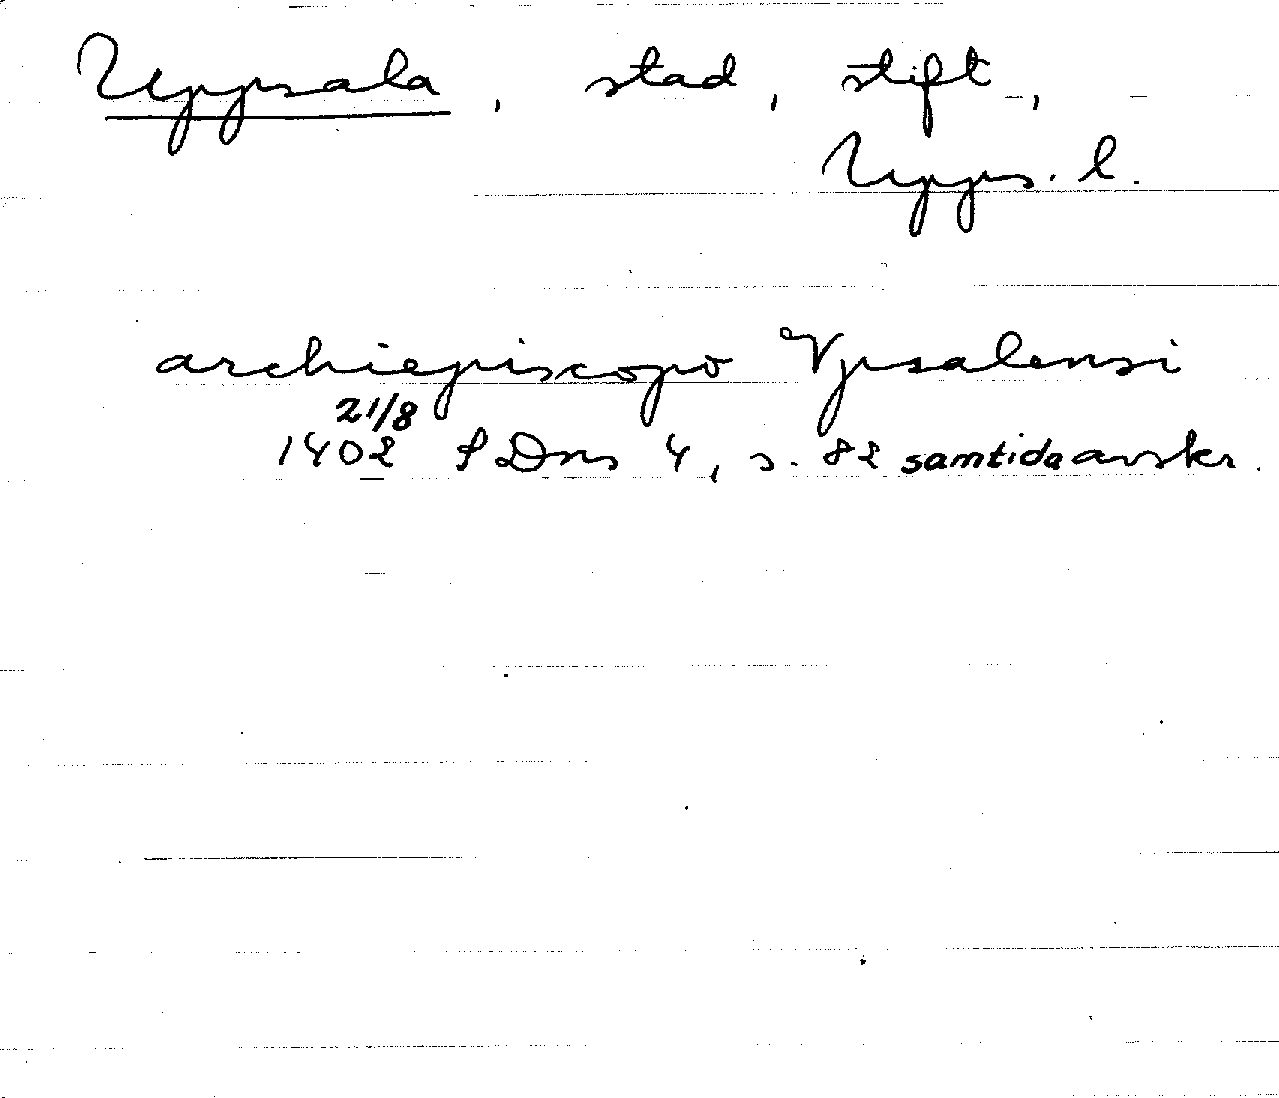 Uppsala, stad, stift,
Upps. l.
archiepiscopo Vpsalensi
21/8
1402 SDns 4, s. 82 samtida avskr.